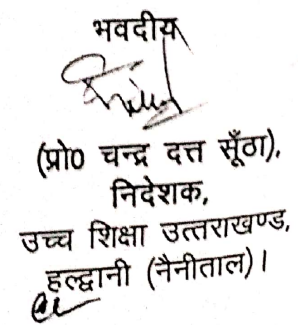 भवदीय
(प्रो0 चन्द्र दत्त सूँठा),
निदेशक,
उच्च शिक्षा उत्तराखण्ड,
हल्द्वानी (नैनीताल)।